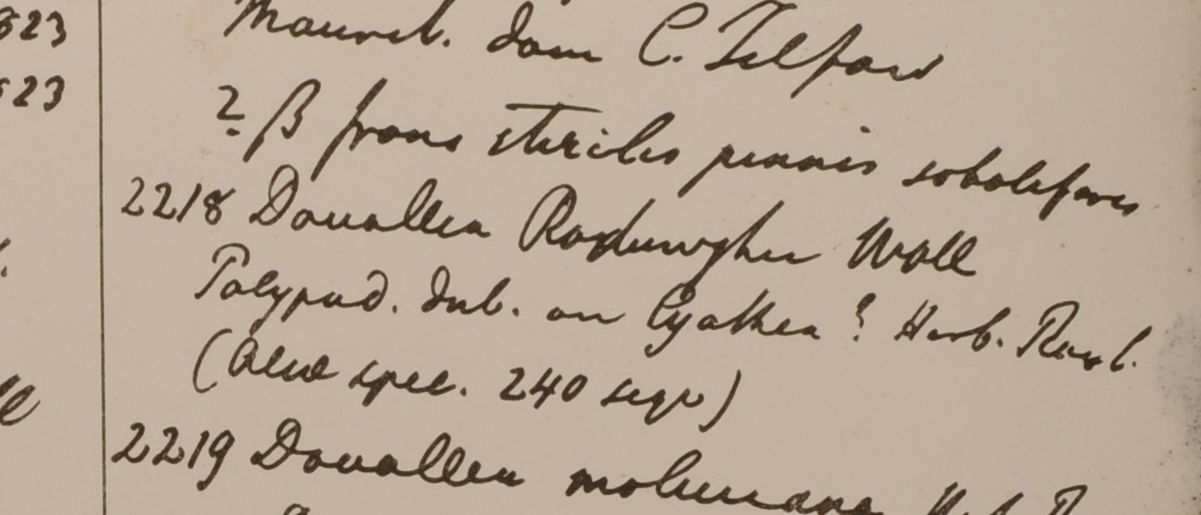 823
Maurit. dom C. Telfair
523
? β frons sterilis pinnis soboliferis
2218 Davallea Wall
Polypod. dub. an Cyathea? Herb. Roxb.
(Alia spec. 240 seqv)
2219 Davallea moluccana